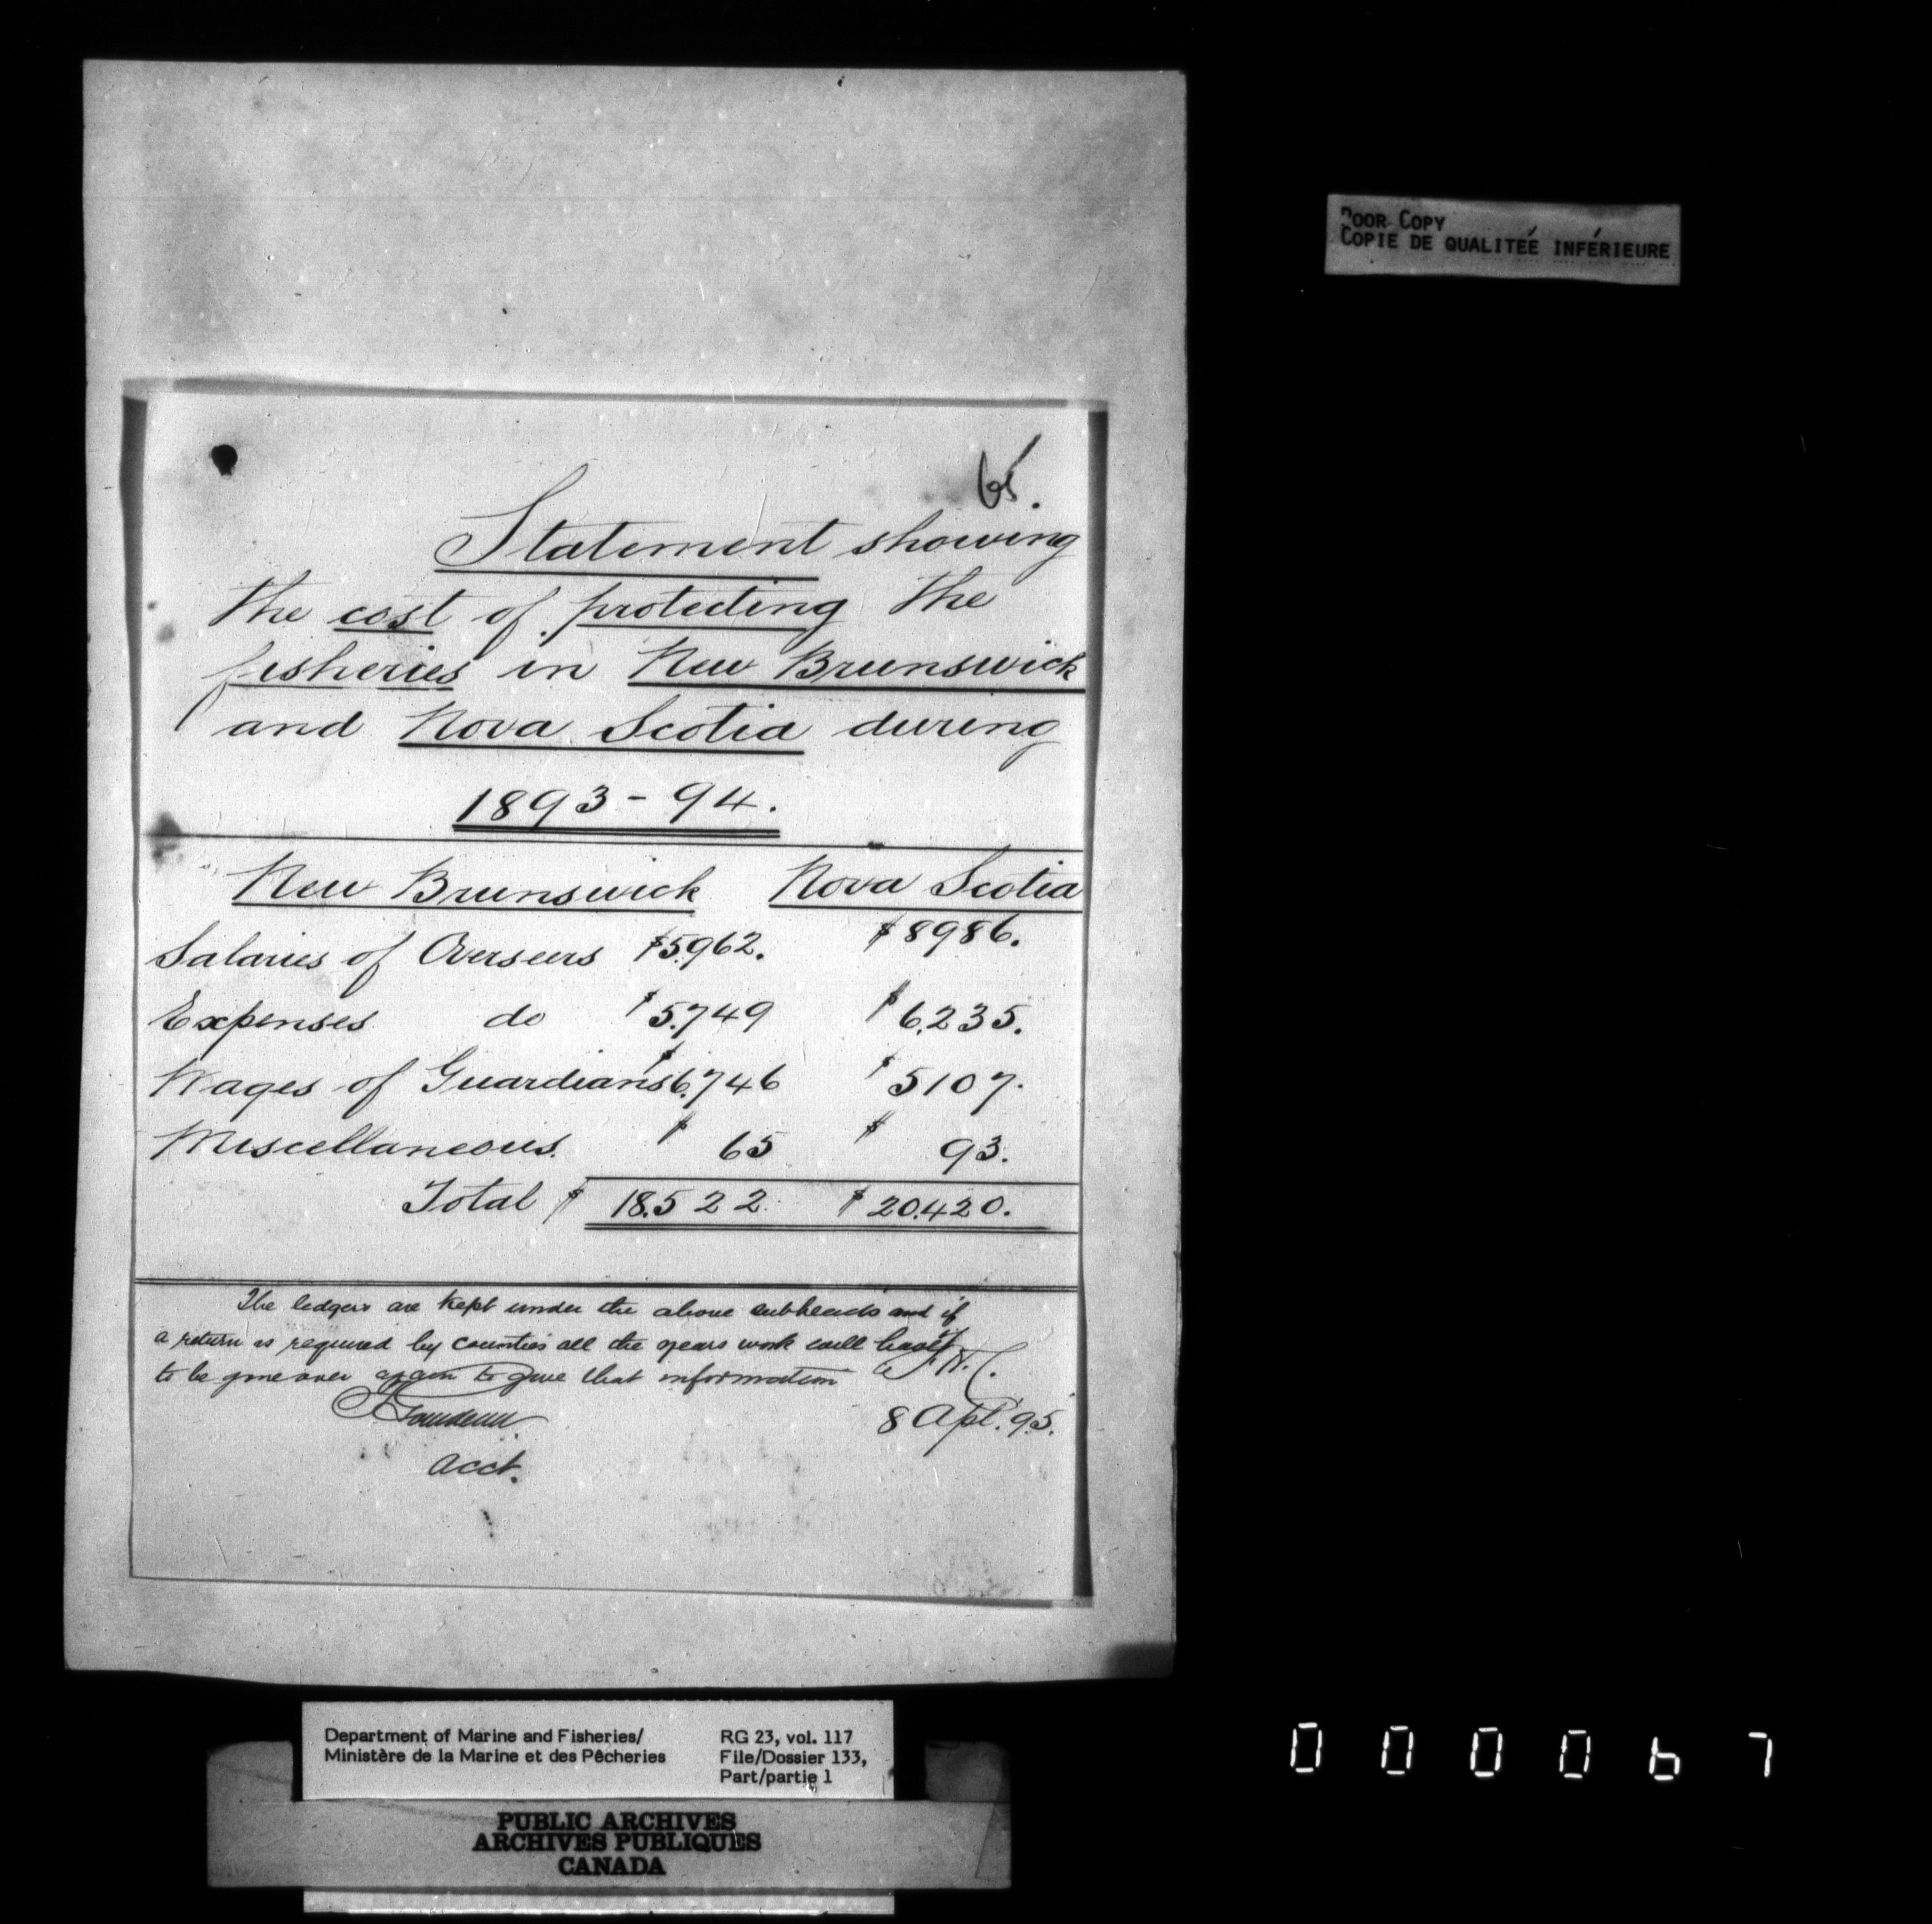 POOR COPY
COPIE DE QUALITEÉ INFÉRIEURE
65.
Statement showing
the cost of protecting the
fisheries in New Brunswick
and Nova Scotia during
1893-94.
New Brunswick Nova Scotia
Salaries of Overseers $5.962. $8986.
Expenses do $5.749 $6.235.
Wages of Guardians $6.746 $5107.
Miscellaneous. $65 $93.
Total $18.522 $20.420.
The ledgers are kept under the above subheads and if
a return is required by counties all the years work will have
to be gone over again to give that information
8 Apl. 95.
Acct.
Department of Marine and Fisheries/ RG 23, vol. 117
Ministère de la Marine et des Pêcheries File/Dossier 133,
Part/partie 1
PUBLIC ARCHIVES
ARCHIVES PUBLIQUES
CANADA
000067